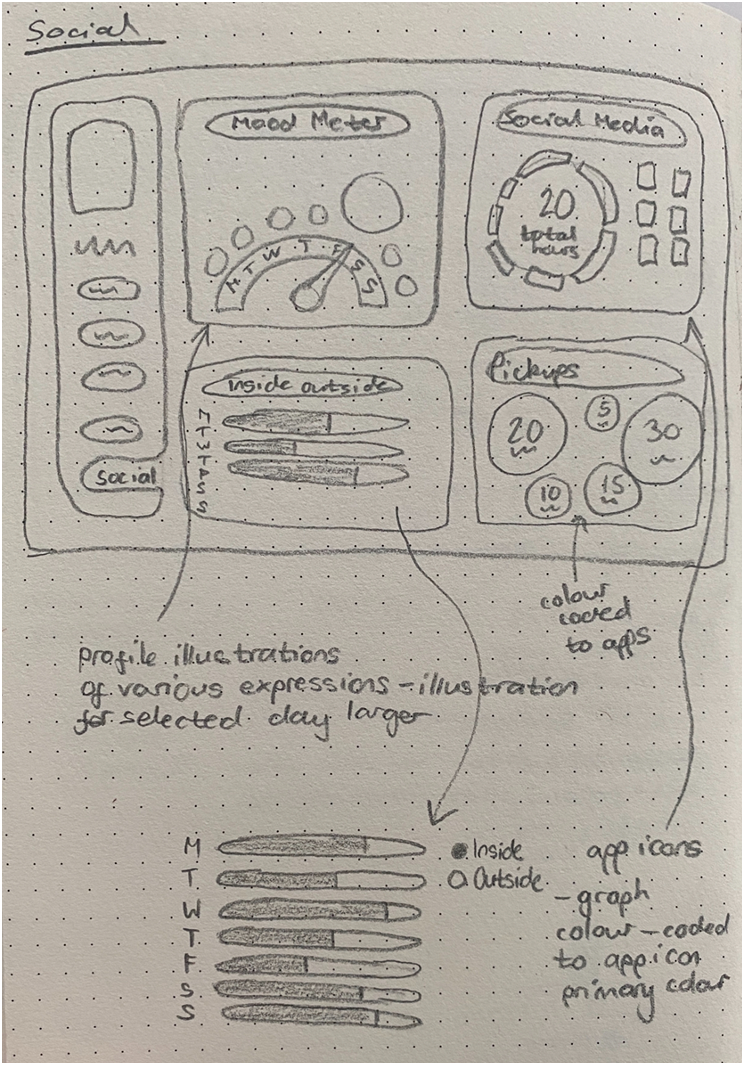 Social
Mood Meter
M T W T F S S
Social Media
20
total
hours
Inside outside
M
T
W
T
F
S
S
Pickups
20
5
30
10
15
Social
colour
coded
to apps
profile illustrations
of various expressions - illustration
for selected day larger
M
T
W
T
F
S
S
Inside
Outside
app icons
- graph
colour-coded
to app icon
primary colour